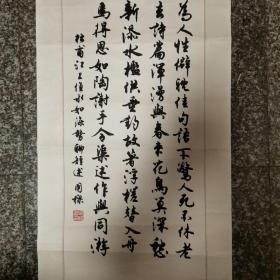 為人性僻耽佳句語不驚人死不休老
去詩篇渾漫與春来花鳥莫深愁
新添水檻供垂釣故著浮槎替入舟
焉得思如陶謝手令渠述作與同游
杜甫江上值水如海勢聊短述